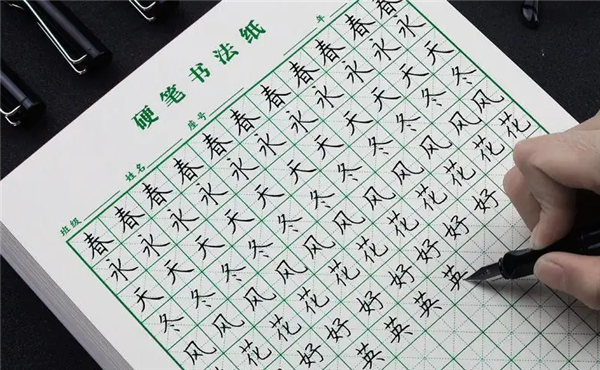 硬笔书法纸
班级 姓名 座号 年
春春春春春春春春春春春
永永永永永永永永永永永
天天天天天天天天天天天
冬冬冬冬冬冬冬冬冬冬冬
风风风风风风风风风风风
花花花花花花花花花花
好好好好好好好
英英英英